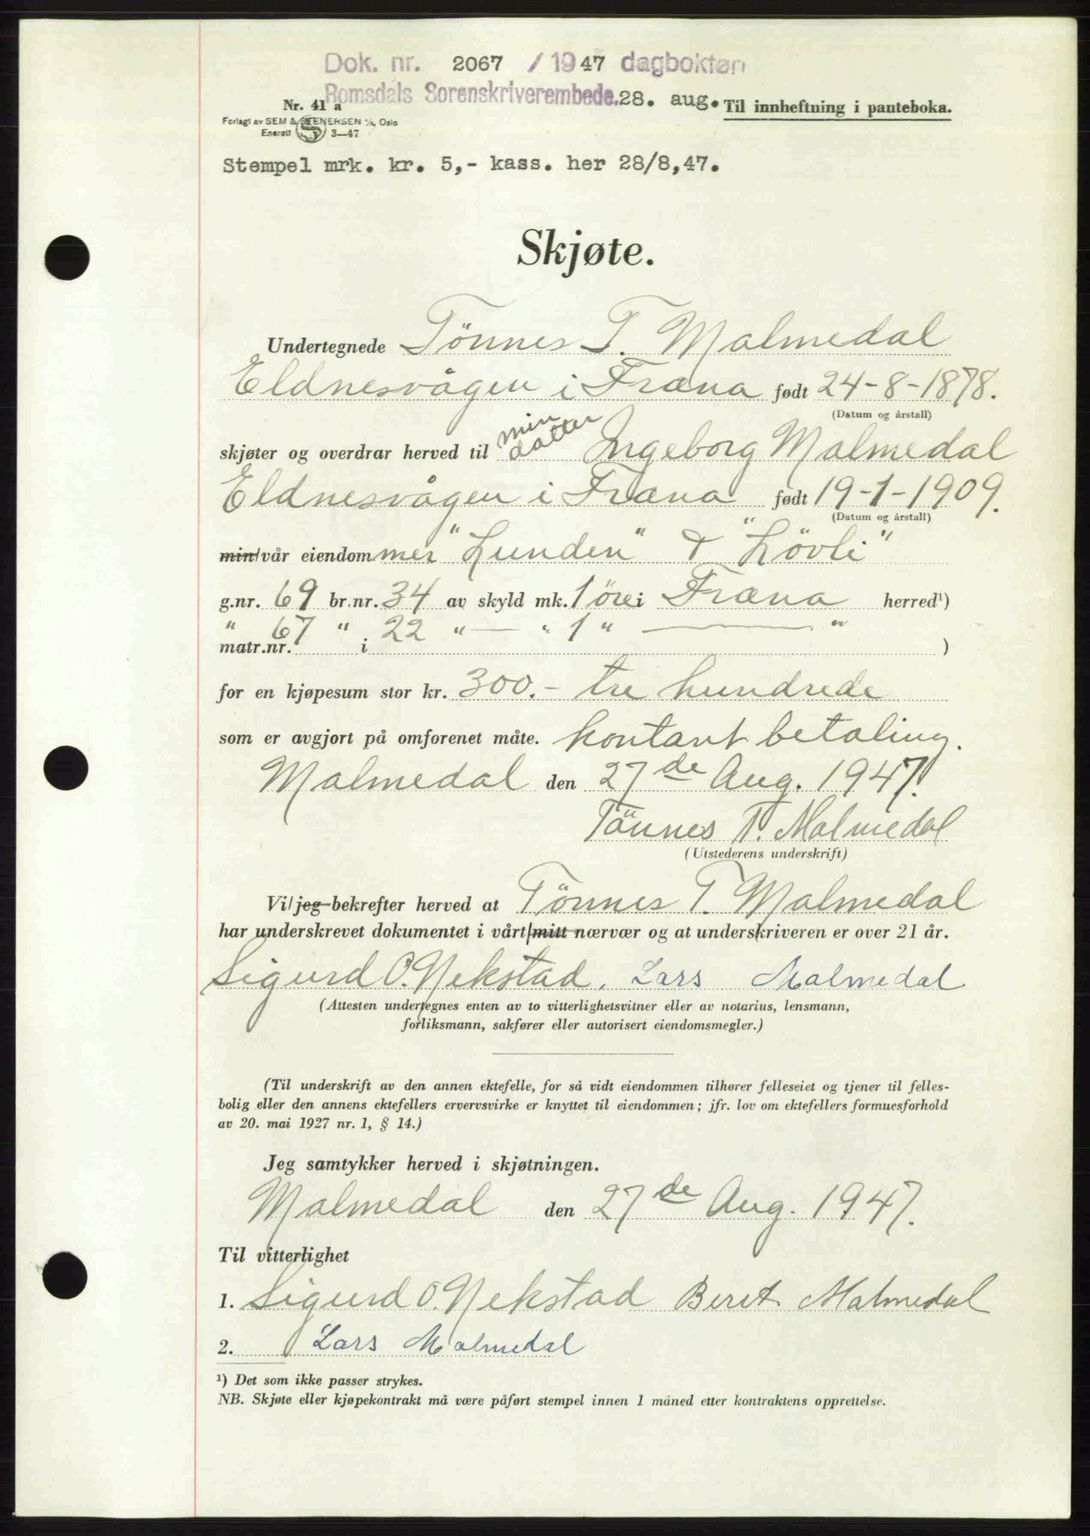 Dok. nr. 2067 / 1947 dagboktøri
Romsdals Sorenskriverembede. 28. aug. Til innheftning i panteboka.
Nr. 41 a
Forlagt av SEM & STENERSEN A/S, Oslo
Enerett S 3-47
Stempel mrk. kr. 5,- kass. her 28/8,47.
Skjøte.
Undertegnede Tönnes T. Malmedal
Eldnesvågen i Fræna født 24-8-1878.
(Datum og årstall)
skjøter og overdrar herved til min datter Ingeborg Malmedal
Eldnesvågen i Fræna født 19-1-1909.
(Datum og årstall)
min/vår eiendommer "Lunden" & "Lövli"
g.nr. 69 br.nr. 34 av skyld mk. 1 öre i Fræna herred¹)
" 67 " 22 " — " 1 " — "
matr.nr. i )
for en kjøpesum stor kr. 300.- tre hundrede
som er avgjort på omforenet måte. kontant betaling.
Malmedal den 27de Aug. 1947.
Tönnes T. Malmedal
(Utstederens underskrift)
Vi/jeg bekrefter herved at Tönnes T. Malmedal
har underskrevet dokumentet i vårt/mitt nærvær og at underskriveren er over 21 år.
Sigurd O. Nekstad, Lars Malmedal
(Attesten undertegnes enten av to vitterlighetsvitner eller av notarius, lensmann,
forliksmann, sakfører eller autorisert eiendomsmegler.)
(Til underskrift av den annen ektefelle, for så vidt eiendommen tilhører felleseiet og tjener til felles-
bolig eller den annens ektefellers ervervsvirke er knyttet til eiendommen; jfr. lov om ektefellers formuesforhold
av 20. mai 1927 nr. 1, § 14.)
Jeg samtykker herved i skjøtningen.
Malmedal den 27de Aug. 1947.
Til vitterlighet
1. Sigurd O. Nekstad Beret Malmedal
2. Lars Malmedal
¹) Det som ikke passer strykes.
NB. Skjøte eller kjøpekontrakt må være påført stempel innen 1 måned etter kontraktens opprettelse.